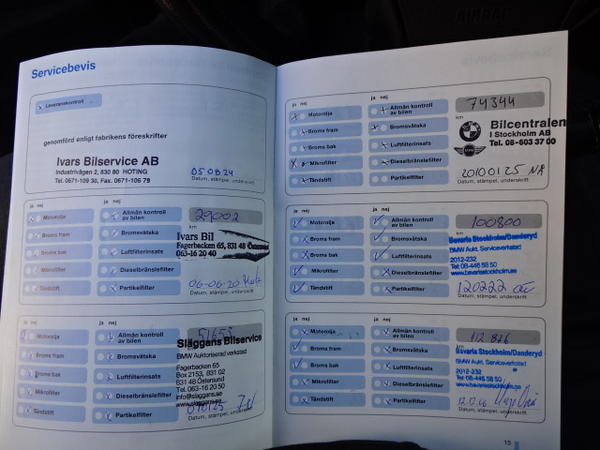 Servicebevis
Leveranskontroll
genomförd enligt fabrikens föreskrifter
Ivars Bilservice AB
Industrivägen 2, 830 80 HOTING
Tel. 0671-109 30, Fax. 0671-106 79
050824
Datum, stämpel, underskrift
ja nej ja nej
29002
km
Motorolja
Allmän kontroll av bilen
Broms fram
Bromsvätska
Broms bak
Luftfilterinsats
Mikrofilter
Dieselbränslefilter
Tändstift
Partikelfilter
Ivars Bil
Fagerbacken 65, 831 48 Östersund
063-16 20 40
06-06-20
Datum, stämpel, underskrift
ja nej ja nej
51655
Motorolja
Allmän kontroll av bilen
Broms fram
Bromsvätska
Broms bak
Luftfilterinsats
Mikrofilter
Dieselbränslefilter
Tändstift
Partikelfilter
Släggans Bilservice
BMW Auktoriserad verkstad
Fagerbacken 65
Box 2153, 831 02
831 48 Östersund
Tel. 063-16 20 50
info@slaggans.se
Datum, stämpel, underskrift
ja nej ja nej
74344
km
Motorolja
Allmän kontroll av bilen
Broms fram
Bromsvätska
Broms bak
Luftfilterinsats
Mikrofilter
Dieselbränslefilter
Tändstift
Partikelfilter
BMW
MINI
Bilcentralen
I Stockholm AB
Tel. 08-603 37 00
20100125 NA
Datum, stämpel, underskrift
ja nej ja nej
100800
km
Motorolja
Allmän kontroll av bilen
Broms fram
Bromsvätska
Broms bak
Luftfilterinsats
Mikrofilter
Dieselbränslefilter
Tändstift
Partikelfilter
Bavaria Stockholm/Danderyd
BMW Aukt. Serviceverkstad
2012-232
Tel: 08-446 58 50
www.bavariastockholm.se
120222
Datum, stämpel, underskrift
ja nej ja nej
112 826
Motorolja
Allmän kontroll av bilen
Broms fram
Bromsvätska
Broms bak
Luftfilterinsats
Mikrofilter
Dieselbränslefilter
Tändstift
Partikelfilter
Bavaria Stockholm/Danderyd
BMW Aukt. Serviceverkstad
2012-232
Tel: 08-446 58 50
www.bavariastockholm.se
Datum, stämpel, underskrift
15
AIRBAG